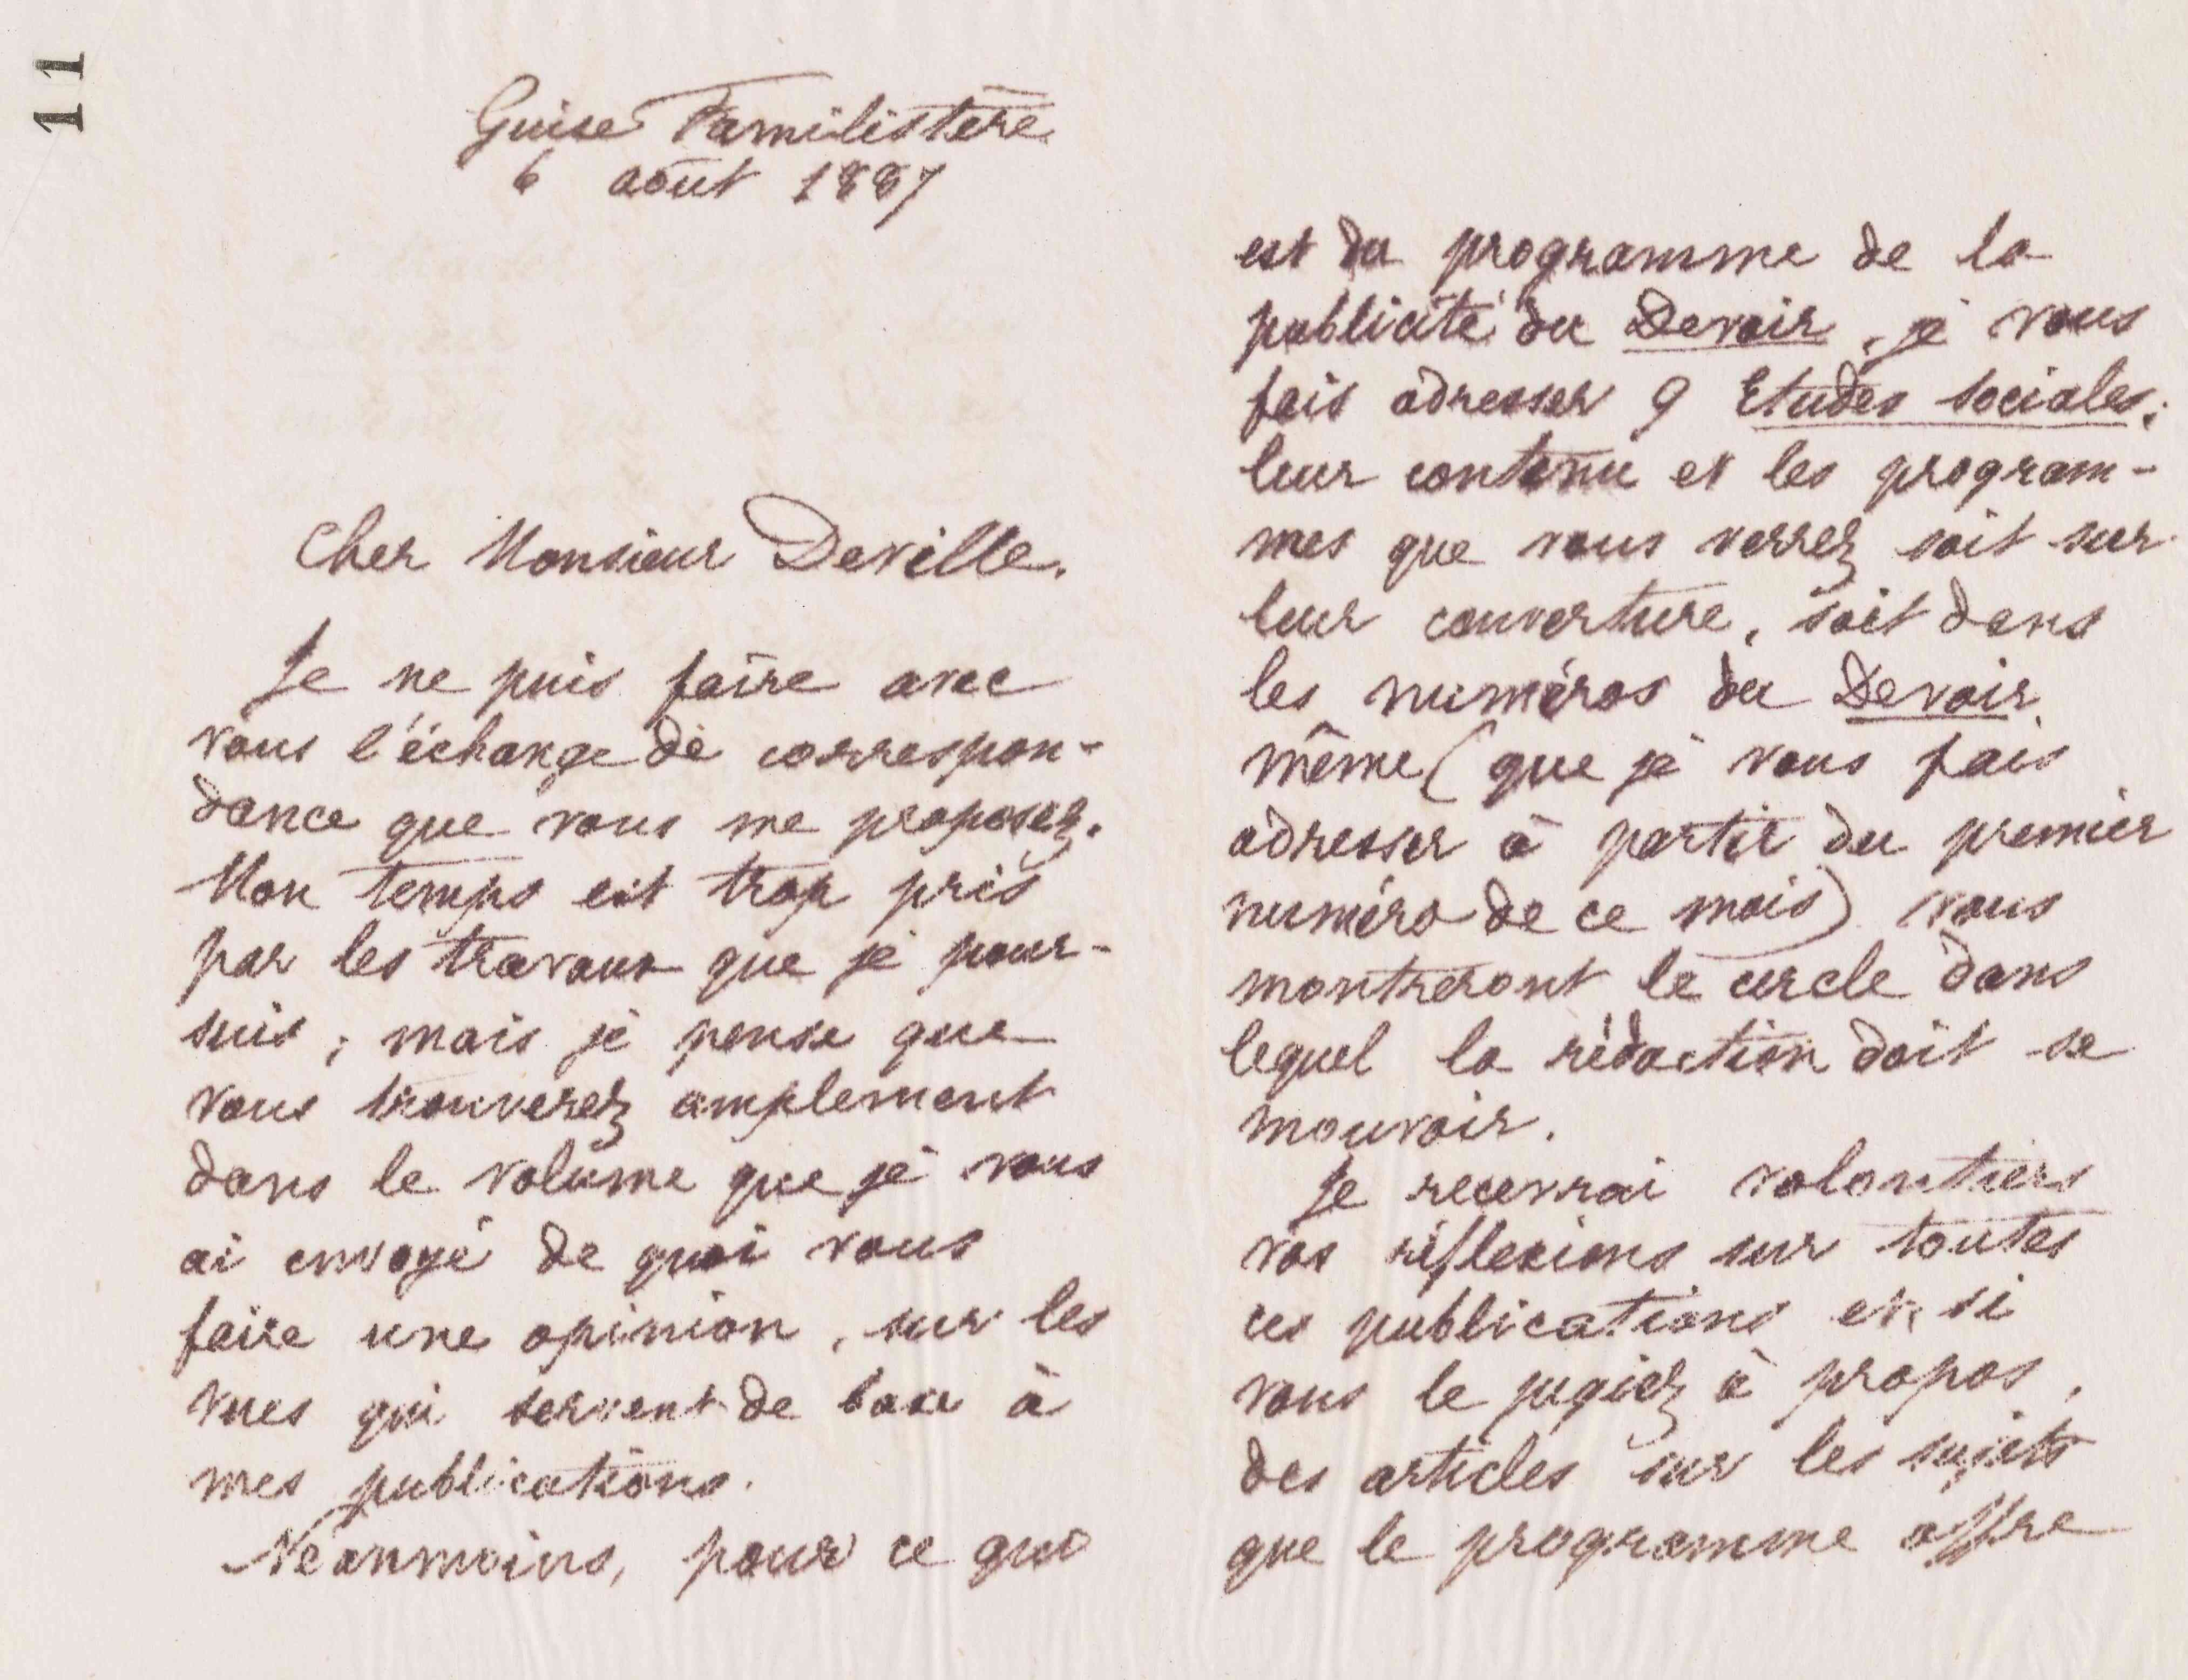 11
Guise Familistère
6 août 1887
Cher Monsieur Deville.
Je ne puis faire avec
vous l'échange de correspon-
dance que vous me proposez.
Mon temps est trop pris
par les travaux que je pour-
suis ; mais je pense que
vous trouverez amplement
dans le volume que je vous
ai envoyé de quoi vous
faire une opinion, sur les
vues qui servent de base à
mes publications.
Néanmoins, pour ce qui
est du programme de la
publicité du Devoir, je vous
fais adresser 9 Etudes sociales;
leur contenu et les program-
mes que vous verrez soit sur
leur couverture, soit dans
les numéros du Devoir
même (que je vous fais
adresser à partir du premier
numéro de ce mois) vous
montreront le cercle dans
lequel la rédaction doit se
mouvoir.
Je recevrai volontiers
vos réflexions sur toutes
ces publications et, si
vous le jugiez à propos,
des articles sur les sujets
que le programme offre